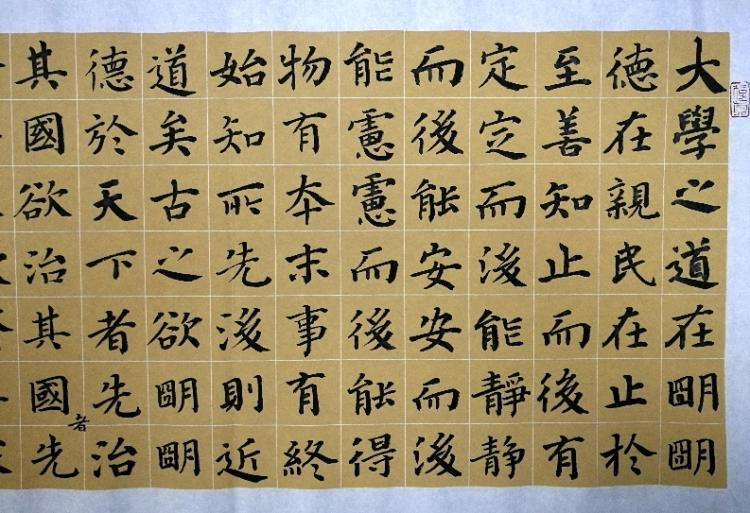 大學之道在明明
德在親民在止於
至善知止而後有
定定而後能靜靜
而後能安安而後
能慮慮而後能得
物有本末事有終
始知所先後則近
道矣古之欲明明
德於天下者先治
其國欲治其國者先